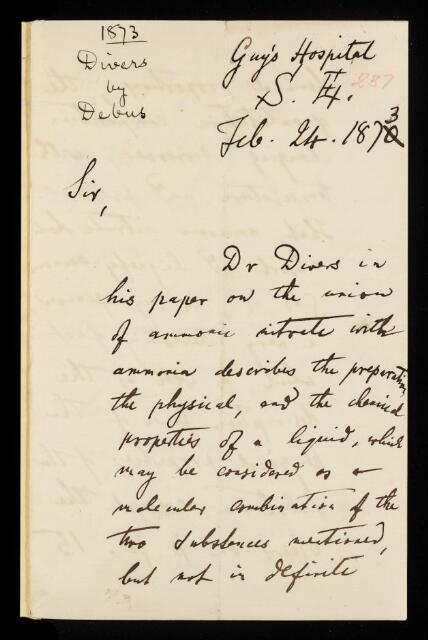 1873
Divers
by
Debus
Guy's Hospital
S. E.
287
Feb. 24. 1873
Sir,
Dr Divers in
his paper on the union
of ammonic nitrate with
ammonia describes the preparation,
the physical, and the chemical
properties of a liquid, which
may be considered as a
molecular combination of the
two substances mentioned,
but not in definite